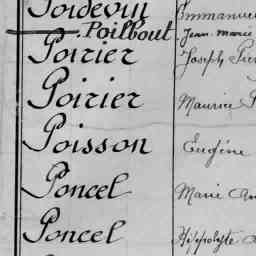 Poidevin Emmanuel
Poilbout Jean-Marie
Poirier Joseph
Poirier Maurice
Poisson Eugène
Poncel Marie
Poncel Hippolyte